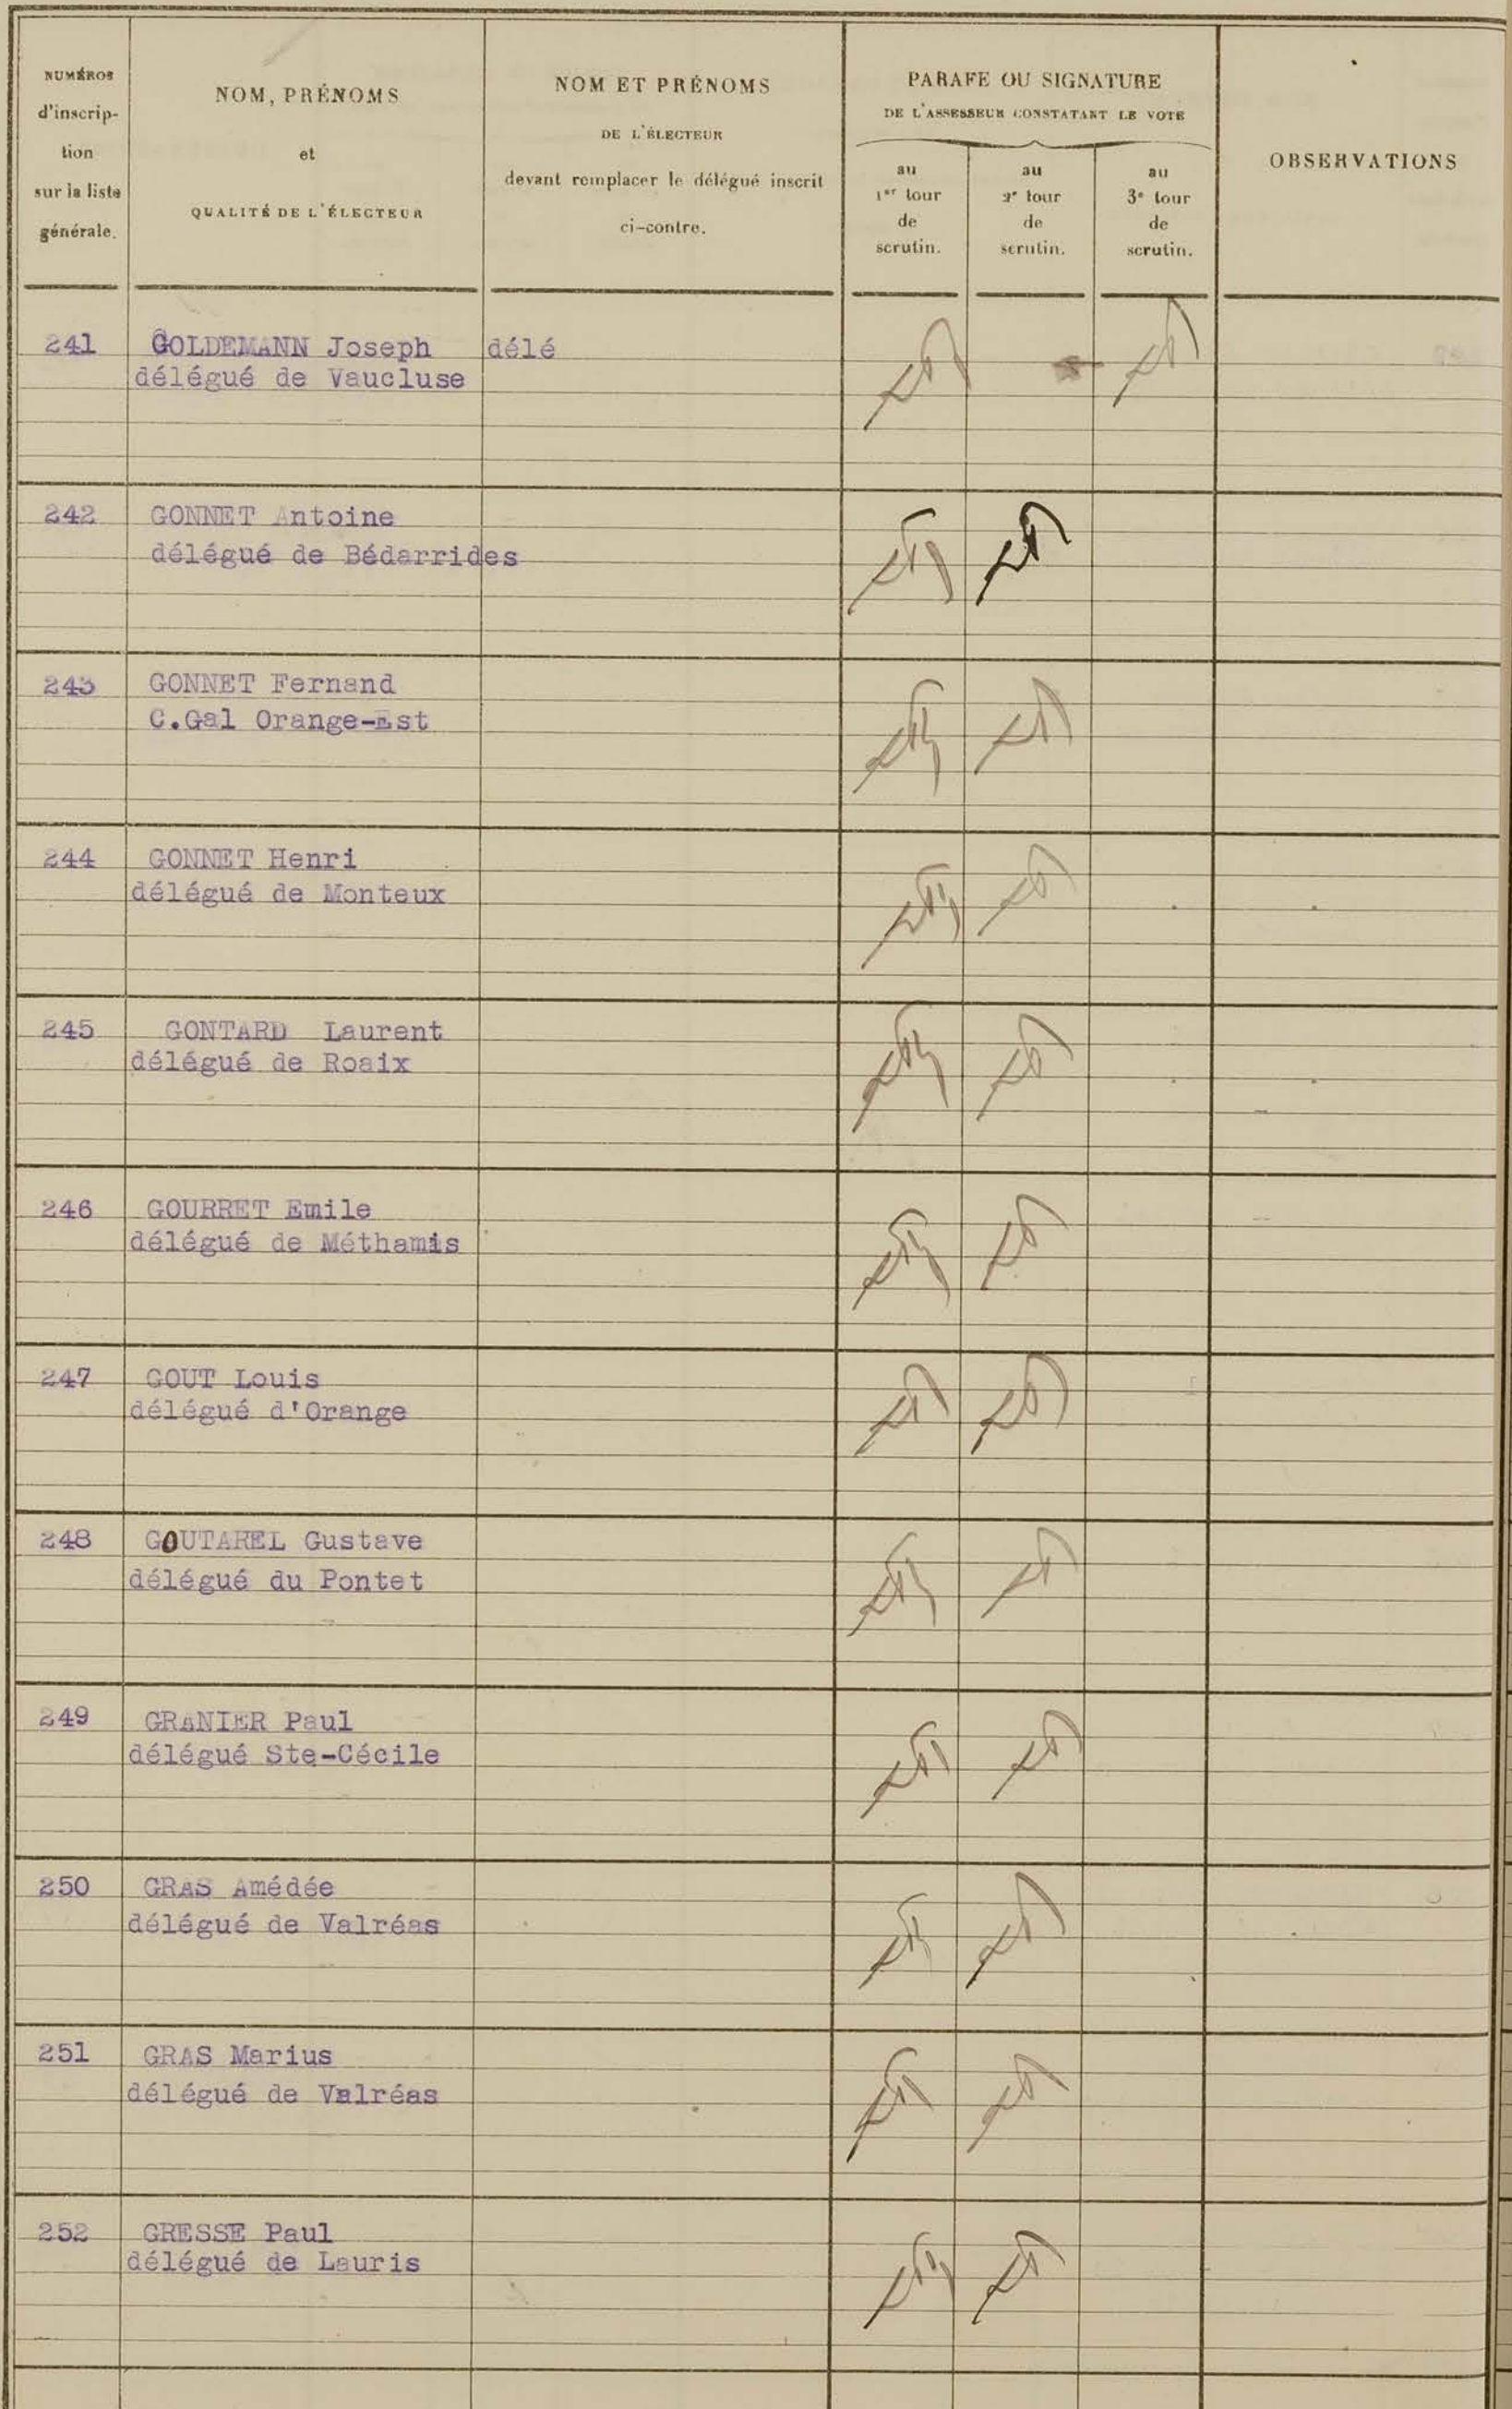 NUMÉROS
d'inscrip-
tion
sur la liste
générale.
NOM, PRÉNOMS
et
QUALITÉ DE L'ÉLECTEUR
NOM ET PRÉNOMS
DE L'ÉLECTEUR
devant remplacer le délégué inscrit
ci-contre.
PARAFE OU SIGNATURE
DE L'ASSESSEUR CONSTATANT LE VOTE
au
1er tour
de
scrutin.
au
2e tour
de
scrutin.
au
3e tour
de
scrutin.
OBSERVATIONS
241 GOLDEMANN Joseph délé
délégué de Vaucluse
242 GONNET Antoine
délégué de Bédarrides
243 GONNET Fernand
C.Gal Orange-Est
244 GONNET Henri
délégué de Monteux
245 GONTARD Laurent
délégué de Roaix
246 GOURRET Emile
délégué de Méthamis
247 GOUT Louis
délégué d'Orange
248 GOUTAREL Gustave
délégué du Pontet
249 GRANIER Paul
délégué Ste-Cécile
250 GRAS Amédée
délégué de Valréas
251 GRAS Marius
délégué de Valréas
252 GRESSE Paul
délégué de Lauris